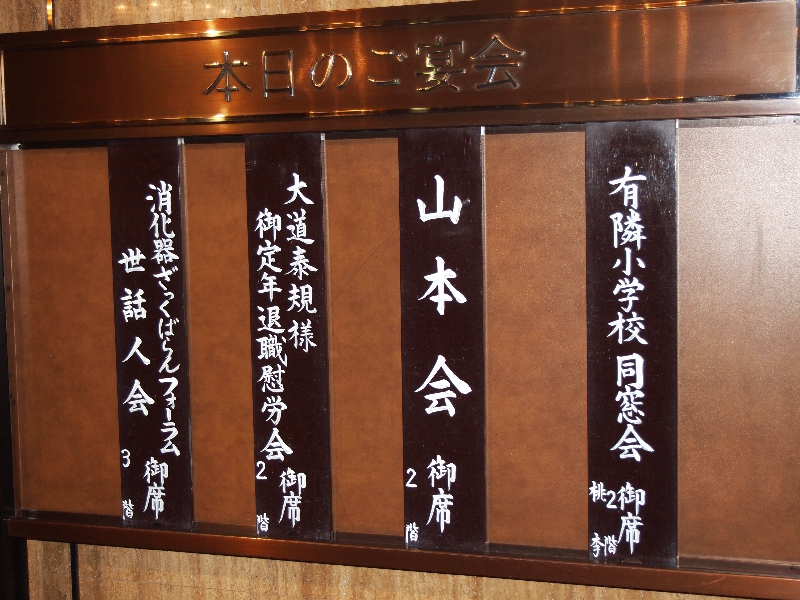 本日のご宴会
有隣小学校同窓会御席
2階
桃李
山本会御席
2階
大道泰規様
御定年退職慰労会御席
2階
消化器ざっくばらんフォーラム
世話人会御席
3階